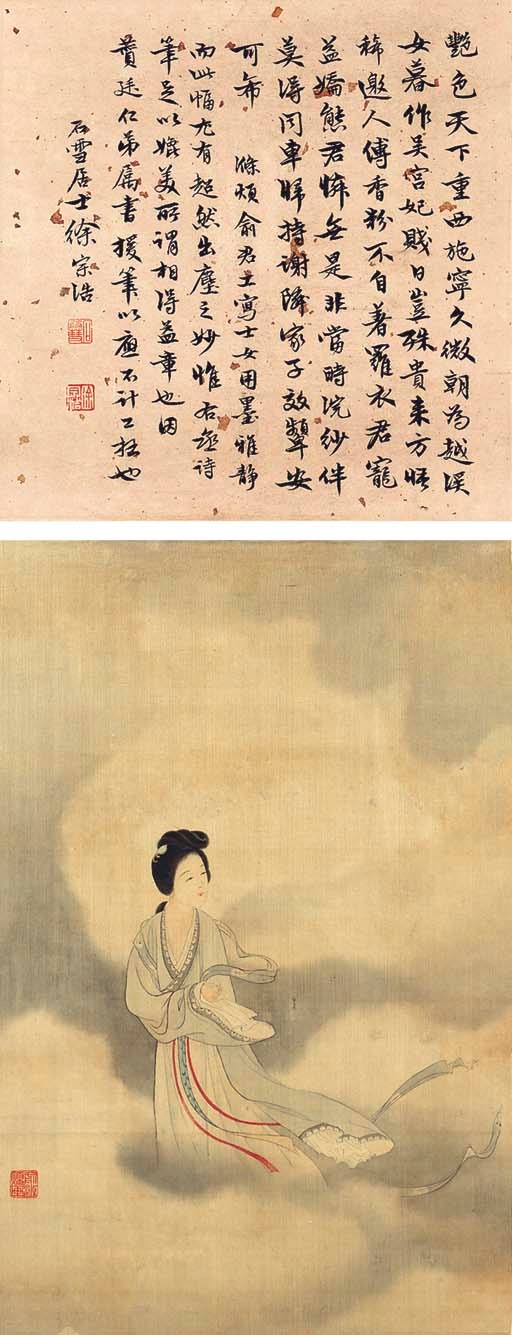 艷色天下重西施寧久微朝為越溪
女暮作吳宮妃賤日豈殊貴來方悟
稀邀人傅香粉不自著羅衣君寵
益嬌態君憐無是非當時浣紗伴
莫得同車歸持謝隣家子效顰安
可希 滌煩俞君工寫士女用墨雅靜
而此幅尤有超然出塵之妙惟右丞詩
筆足以媲美所謂相得益章也因
廷仁弟属書援筆以應不計工拙也
石雪居士徐宗浩